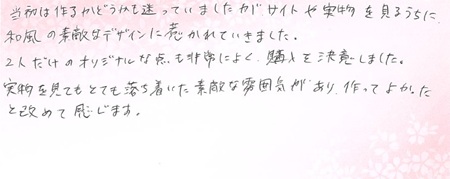 当初は作るかどうかも迷っていましたがサイトや実物を見るうちに、
和風の素敵なデザインに惹かれていきました。
2人だけのオリジナルな点も非常によく、購入を決意しました。
実物を見てもとても落ち着いた素敵な雰囲気があり、作ってよかった
と改めて感じます。